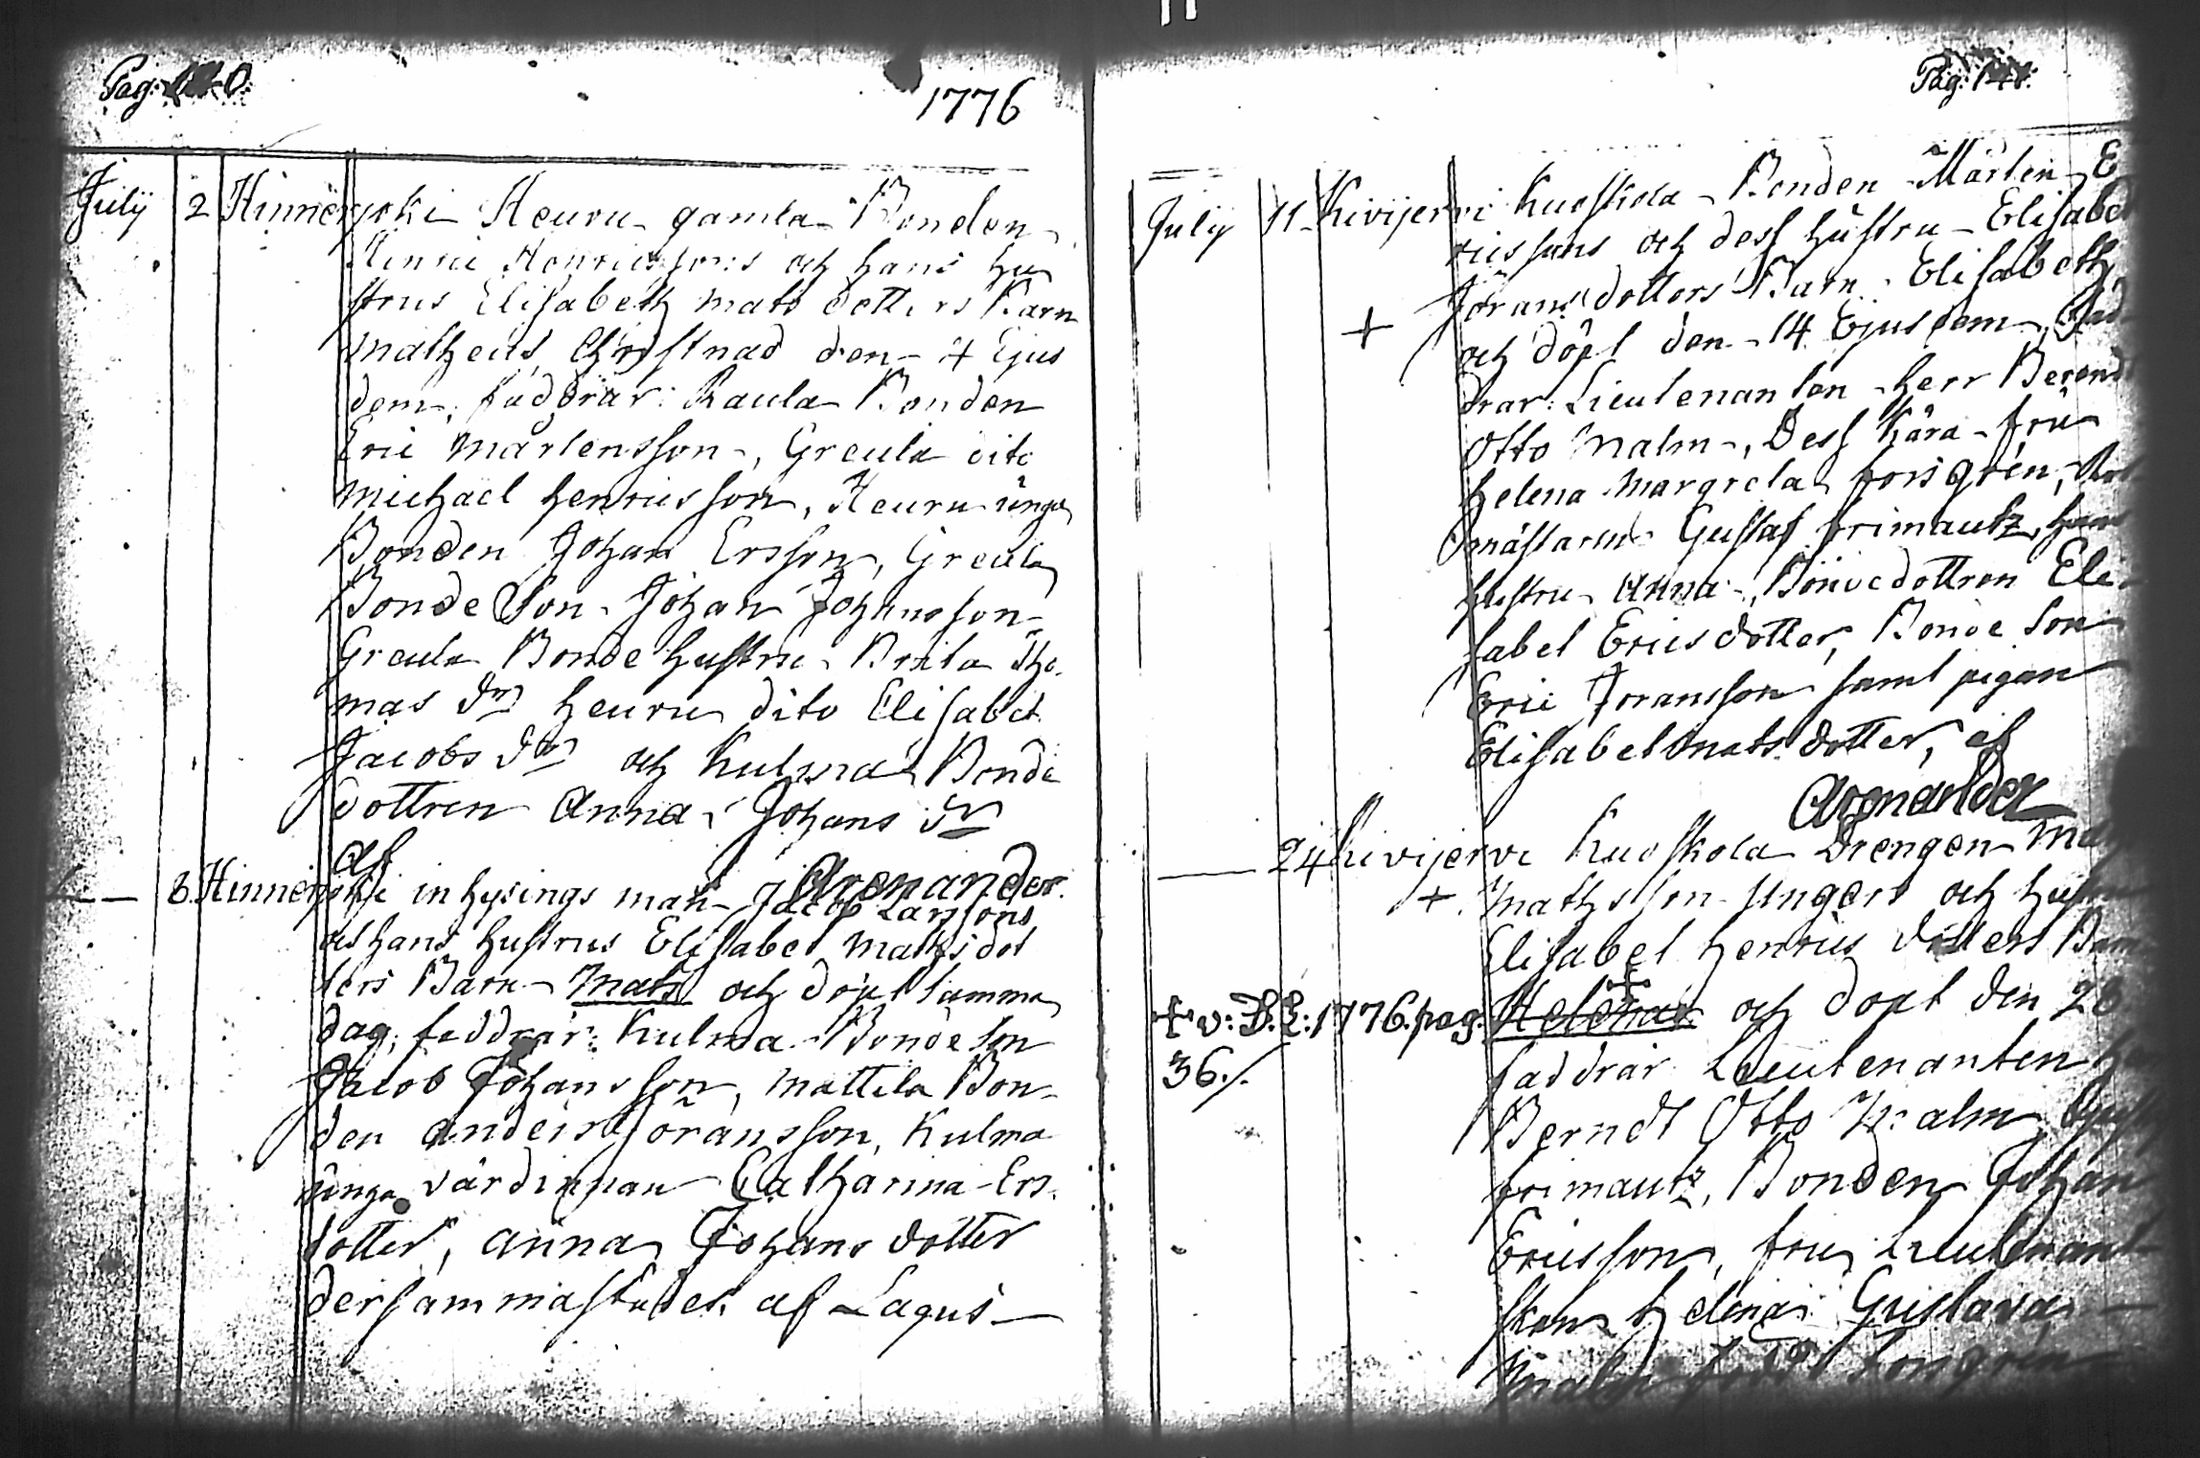 Pag: 140.
1776
July 2 Hinnerjoki Heuru gamla Bonden
Henric Henricssons och hans hu
strus Elisabeth mats dotters Barn
Matheus, Christnad den 4 Ejus
dem, faddrar: Raula Bonden
Eric Mårtensson, Greula dito
Michael Henricsson, Heuru unga
Bonden Johan Ersson, Greula
Bonde Son Johan Johansson
Greula Bonde hustru Brita Tho
mas dr Heuru dito Elisabet
Jacobs dr och Kulma Bonde
dottren Anna Johans dr
af Arenander.
— 8. Hinnerjoki inhysings man Jacob Larssons
och hans hustrus Elisabet Matksdot
ters Barn Mats och döpt samma
dag, faddrar: Kulma Bonde Son
Jacob Johansson, Mattila Bon-
den Anders Jöransson, Kulma
unga värdinnan Catharina Ers
dotter, Anna Johans dotter
dersammastädes. af Lagus
Pag: 141.
July 11 Kivijervi Kuoskola Bonden Mårten E
ricssons och dess hustru Elisabet
Jöransdotters Barn Elisabeth,
+ och döpt den 14 Ejusdem, Fad
drar: Lieutenanten herr Berend
Otto Malm, Dess Kära fru
Helena Margreta Forsgrén,
mästaren Gustaf Frimautz, hans
hustru Anna, Bondedottren Eli
sabet Ericsdotter, Bonde Son
Eric Joransson samt pigan
Elisabet Matsdotter, af
Arenander
— 24 Kivijervi Kuoskola Drengen
+ Mathsson Ungers och hustru
Elisabet Henrics dotters Barn
+ v: D.L: 1776. pag. Helena + och döpt den 28
36./. faddrar Lieutenanten
Berndt Otto Malm,
Frimautz, Bonden Johan
Ericsson, fru Lieutenant
skan Helena Gustava
Malm född Forsgren